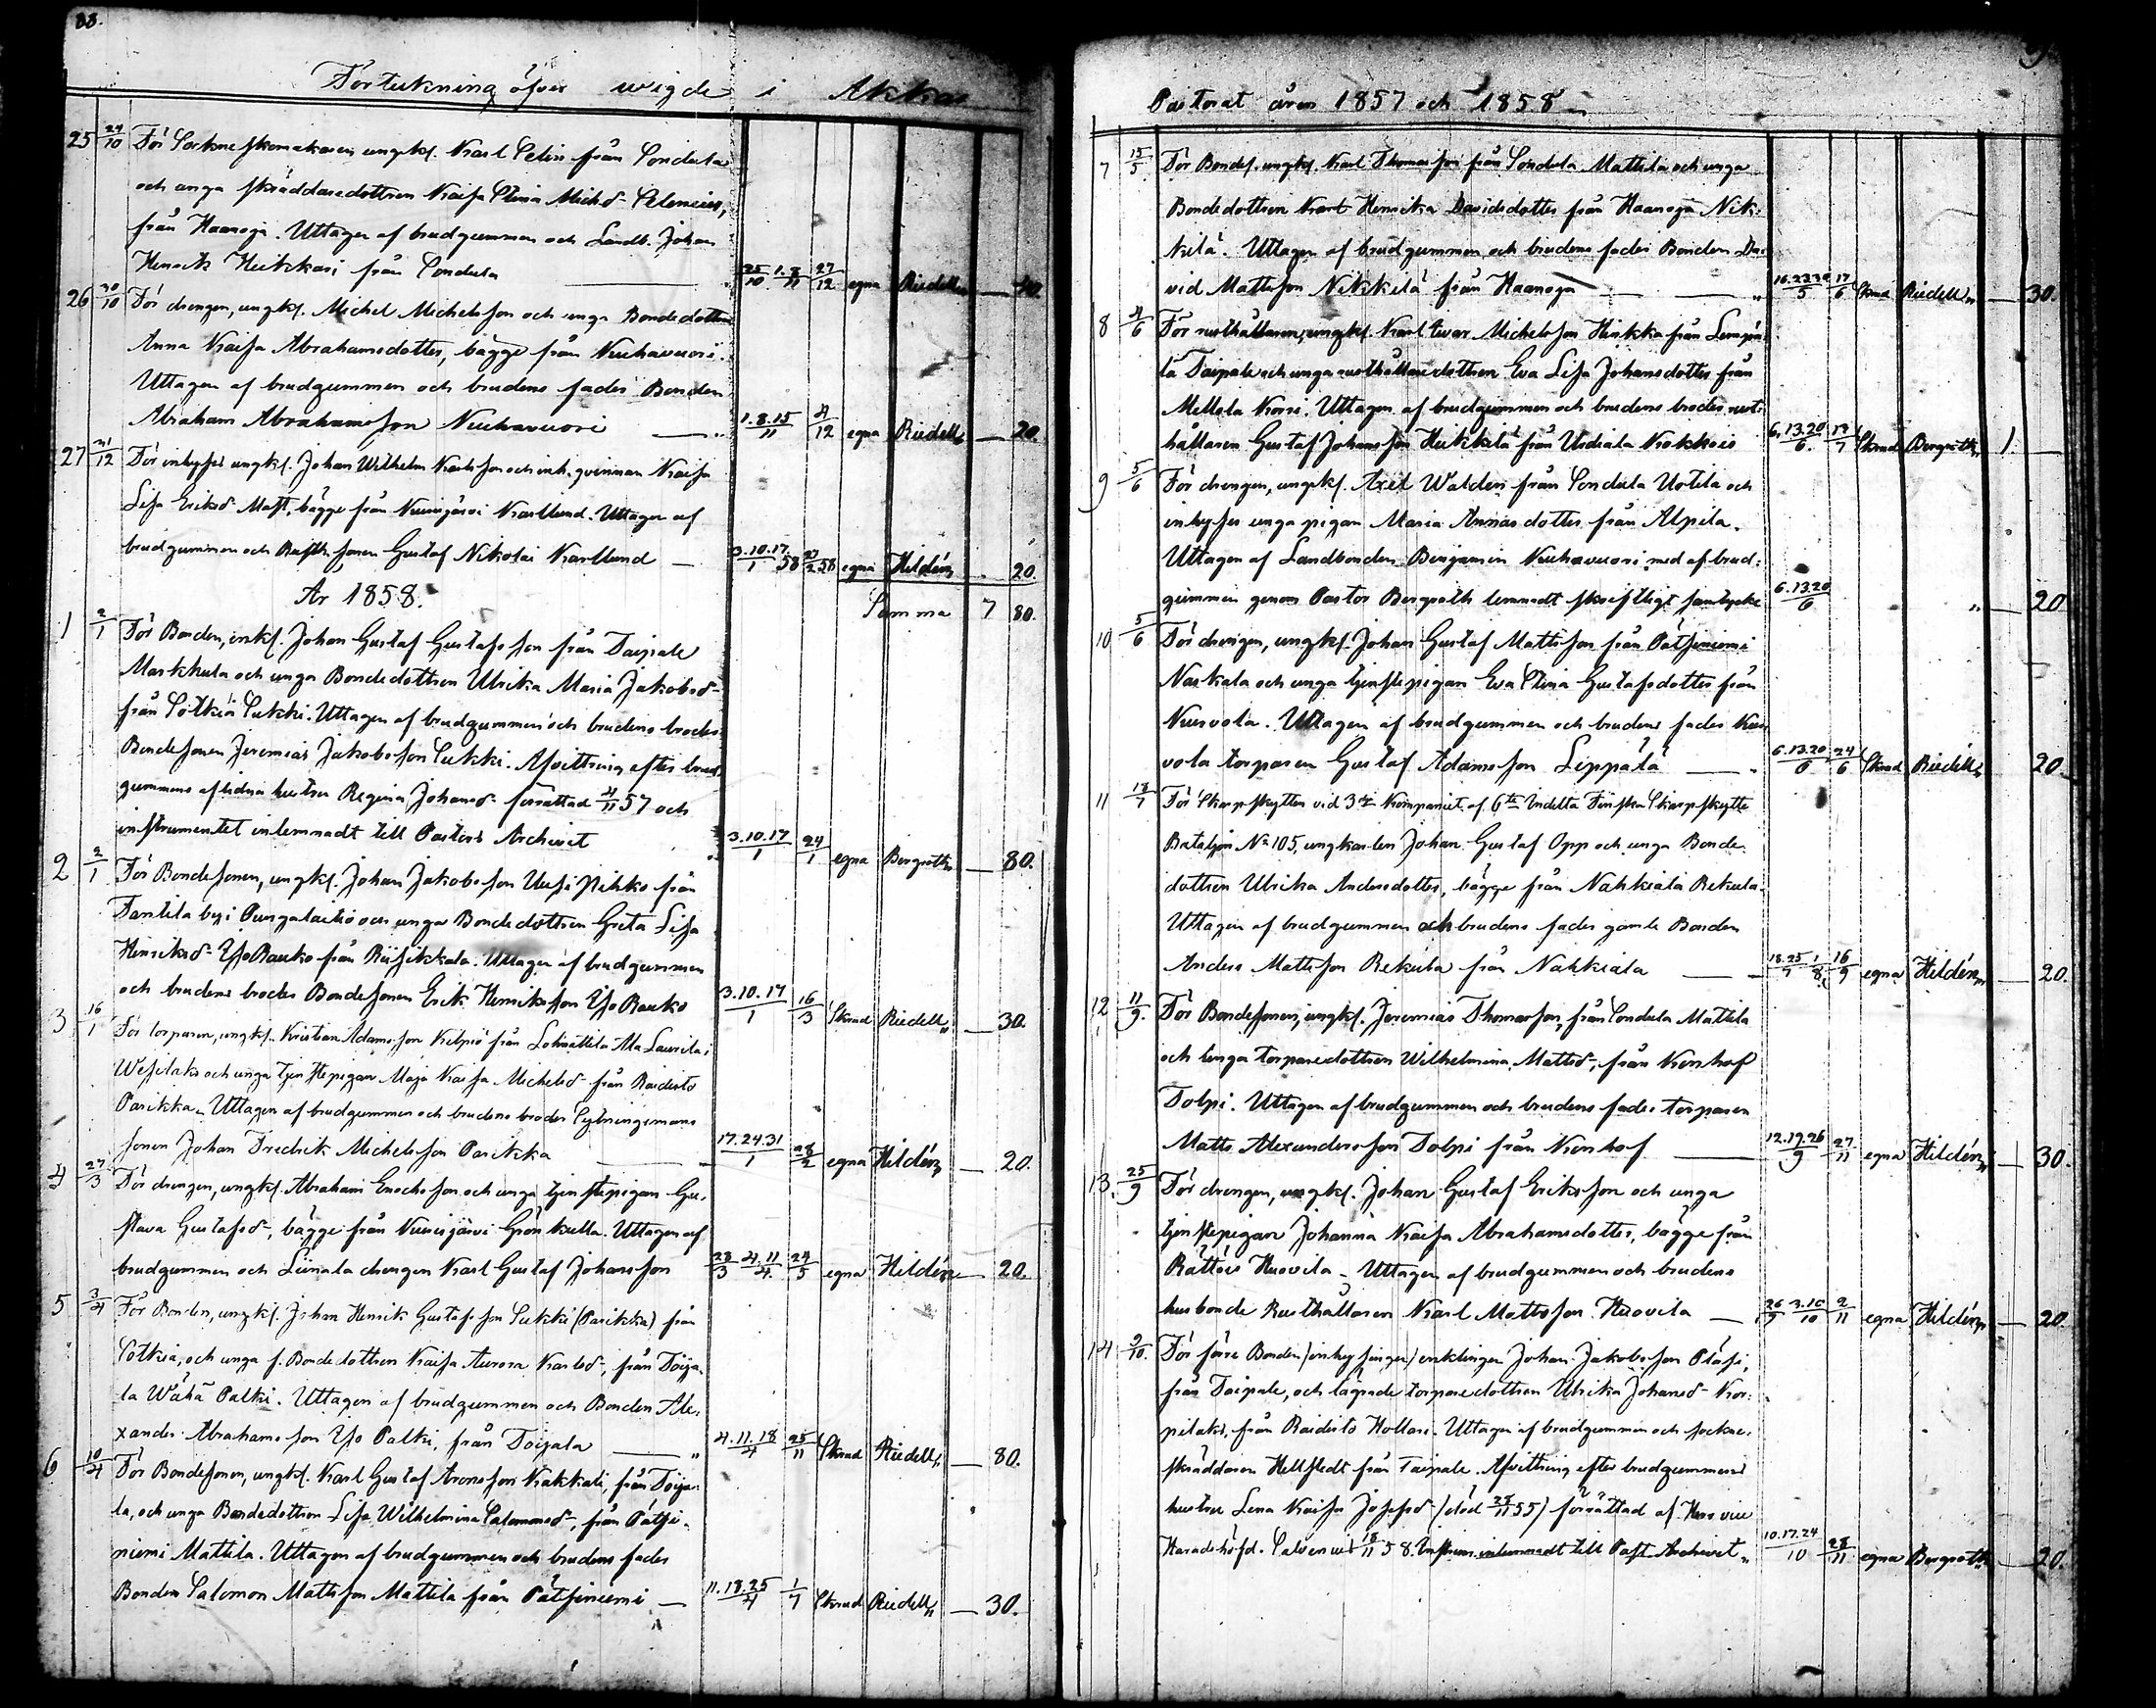 88.
Förteckning öfver wigde i Akkas
25 24/10 För Sockneskomakaren ungk. Karl Selin från Sondula
och unga skräddaredottren Kaisa Stina Michsd. Selenius,
från Haanoja. Uttagen af brudgummen och Landb. Johan
Henrik Heikkari från Sondula 25/10 1.8/11 27/12 egna Riedell
26 30/10 För drengen, ungk. Michel Michelsson och unga Bondedottren
Anna Kaisa Abrahamsdotter, bägge från Kurhavuori.
Uttagen af brudgummen och brudens fader Bonden
Abraham Abrahamsson 1.8.15/11 4/12 egna Riedell — 20.
27 31/12 För inhyses ungk. Johan Wilhelm Karlsson och inh. qvinnan Kaisa
Lisa Eriksd. Matt, bägge från Kurisjärvi Karllund. Uttagen af
brudgummen och Rusth. sonen Gustaf Nikolai Karllund — 3.10.17/1 58 27/2 58 egna Hildén 20.
År 1858. Summa 7 80.
1 2/1 För Bonden, enkl. Johan Gustaf Gustafsson från Taipale
Markkula och unga Bondedottren Ulrika Maria Jakobsd.
från Sotkia Sukki. Uttagen af brudgummen och brudens broder
Bondesonen Jeremias Jakobsson Sukki. Afvittring efter brud-
gummens aflidna hustru Regina Johansd. författad 4/11 57 och
instrumentet inlemnadt till Pastors Archivet 3.10.17/1 24/1 egna Bergroth — 80.
2 2/1 För Bondesonen, ungk. Johan Jakobsson Uusi Pihko från
Tantila by i Pungalaitio och unga Bondedottren Greta Lisa
Henriksd. Yso Rauko från Riisikkala. Uttagen af brudgummen
och brudens broder Bondesonen Erik Henriksson Yso Rauko 3.10.17/1 16/3 Skrud Riedell — 30.
3 16/1 För torparen, ungk. Kristian Adamsson Kelpio från Lohnättilä Ala Laurila i
Wesilaks och unga tjenstepigan Maja Kaisa Michelsd. från Raidisto
Parikka. Uttagen af brudgummen och brudens broder
sonen Johan Fredrik Michelsson Parikka 17.24.31/1 28/2 egna Hildén — 20.
4 27/3 För drengen, ungk. Abraham Enochsson och unga tjenstepigan Gu-
stava Gustafsd., bägge från Kurisjärvi Grönkulla. Uttagen af
brudgummen och drengen Karl Gustaf Johansson 28/3 4.11/4 24/5 egna Hildén — 20.
5 3/4 För Bonden, ungk. Johan Henrik Gustafsson Sukki (Parikka) från
Sotkia, och unga f. Bondedottren Kaisa Aurora Karlsd., från Toija-
la Wähä Palki. Uttagen af brudgummen och Bonden Ale-
xander Abrahamsson Yso Palki, från Toijala 4.11.18/4 25/11 Skrud Riedell — 80.
6 10/4 För Bondesonen, ungk. Karl Gustaf Aronsson Kakkali, från Toija-
la, och unga Bondedottren Lisa Wilhelmina Salomonsd., från Pätsi-
niemi Mattila. Uttagen af brudgummen och brudens fader
Bonden Salomon Mattsson Mattila från Pätsiniemi — 11.18.25/4 1/7 Skrud Riedell — 30.
Pastorat åren 1857 och 1858
7 15/5 För Bondes. ungk. Karl Thomasson från Sondula Mattila och unga
Bondedottren Karl Henrika Davidsdotter från Haanoja Nik-
kilä. Uttagen af brudgummen och brudens fader Bonden Da-
vid Mattsson Nikkilä från Haanoja — 16.23.30/5 17/6 Skrud Riedell — 30.
8 4/6 För rusthållaren, ungk. Karl Ewar Michelsson Heikka från
lä Taipale och unga rusthållaredottren Eva Lisa Johansdotter från
Mellola Korri. Uttagen af brudgummen och brudens broder rust-
hållaren Gustaf Johansson Heikkilä från Urdiala Krokkois 6.13.20/6 17/7 Skrud Bergroth 1. —
9 5/6 För drengen, ungk. Axel Walden från Sondula Uotila och
inhyses unga pigan Maria Annasdotter från Alpila.
Uttagen af Landbonden Benjamin Kurhavuori med af brud-
gummen genom Pastor Bergroth lemnadt skriftligt samtycke 6.13.20/6 „ — 20
10 5/6 För drengen, ungk. Johan Gustaf Mattsson från Pätsiniemi
Naskala och unga tjenstepigan Eva Stina Gustafsdotter från
Kurvola. Uttagen af brudgummen och brudens fader Kur-
vola torparen Gustaf Adamsson Leppälä 6.13.20/6 24/6 Skrud Riedell 20.
11 18/7 För Skarpskytten vid 3dje Kompaniet af 6te Indelta Finska Skarpskytte
Bataljon No 105, ungkarlen Johan Gustaf Opp och unga Bonde-
dottren Ulrika Andersdotter, bägge från Nahkiala Rekula.
Uttagen af brudgummen och brudens fader gamle Bonden
Anders Mattsson Rekula från Nahkiala 18.25/7 1/8 16/9 egna Hildén — 20.
12 11/9 För Bondesonen, ungk. Jeremias Thomasson, från Sondula Mattila
och unga torparedottren Wilhelmina Mattsd., från Kronhof
Tolpi. Uttagen af brudgummen och brudens fader torparen
Matts Alexandersson Tolpi från Kronhof 12.19.26/9 27/11 egna Hildén — 30.
13. 25/9 För drengen, ungk. Johan Gustaf Eriksson och unga
tjenstepigan Johanna Kaisa Abrahamsdotter, bägge från
Rättöis Huovila. Uttagen af brudgummen och brudens
husbonde Rusthållaren Karl Mattsson Huovila — 26/9 3.10/10 2/11 egna Hildén — 20.
14 9/10 För förre Bonden /inhysingen/ enklingen Johan Jakobsson
från Taipale, och lägrade torparedottren Ulrika Johansd. Kor-
pilaks, från Raidisto Hollari. Uttagen af brudgummen och sockne-
skräddaren Hellstedt från Taipale. Afvittring efter brudgummens
hustru Lena Kaisa Josefsd. (död 28/11 55) författad af Herr vice
Häradshöfd. 18/11 58. Instrum. inlemnadt till Past. Archivet „ 10.17.24/10 28/11 egna Bergroth — 20.